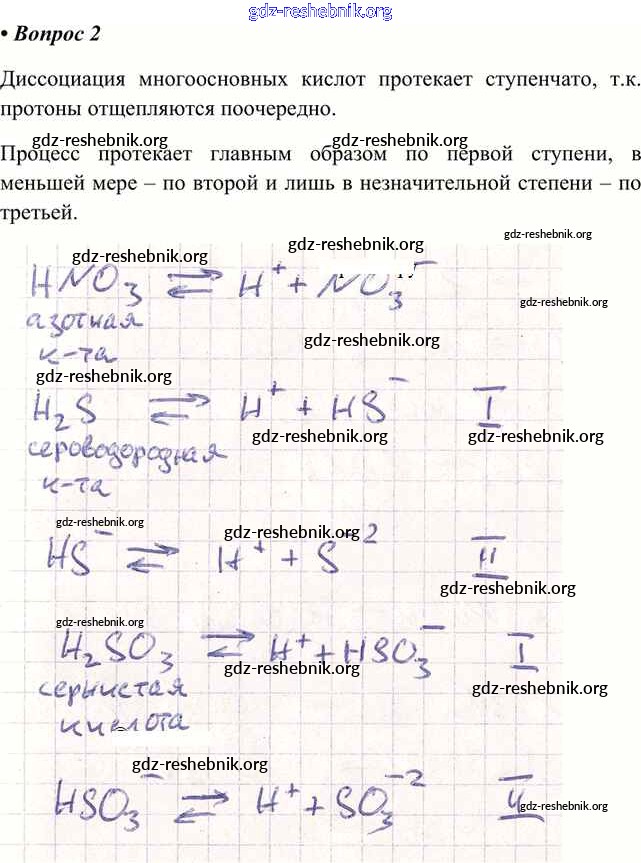 gdz-reshebnik.org
• Вопрос 2
Диссоциация многоосновных кислот протекает ступенчато, т.к.
протоны отщепляются поочередно.
gdz-reshebnik.org gdz-reshebnik.org
Процесс протекает главным образом по первой ступени, в
меньшей мере – по второй и лишь в незначительной степени – по
третьей.
gdz-reshebnik.org
gdz-reshebnik.org
gdz-reshebnik.org
HNO₃ ⇄ H⁺ + NO₃⁻
gdz-reshebnik.org
азотная
gdz-reshebnik.org
к-та
gdz-reshebnik.org
H₂S ⇄ H⁺ + HS⁻ I
gdz-reshebnik.org gdz-reshebnik.org
сероводородная
к-та
gdz-reshebnik.org
gdz-reshebnik.org
HS⁻ ⇄ H⁺ + S⁻² II
gdz-reshebnik.org
gdz-reshebnik.org
H₂SO₃ ⇄ H⁺ + HSO₃⁻ I
gdz-reshebnik.org
сернистая
gdz-reshebnik.org
кислота
gdz-reshebnik.org
HSO₃⁻ ⇄ H⁺ + SO₃⁻² II
gdz-reshebnik.org